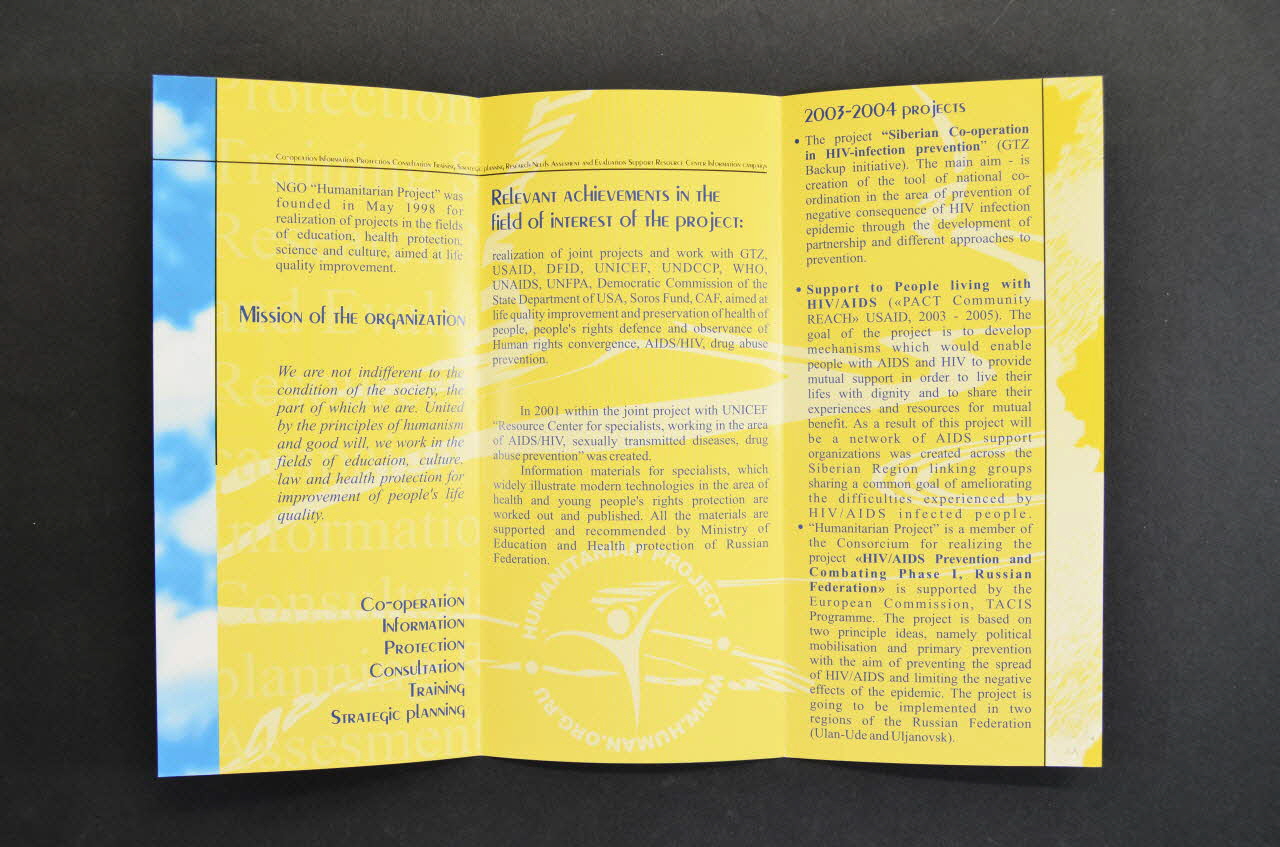 Co-operation Information Protection Consultation Training Strategic planning Research Needs Assesment and Evaluation Support Resource Center Information campaign
NGO “Humanitarian Project” was
founded in May 1998 for
realization of projects in the fields
of education, health protection,
science and culture, aimed at life
quality improvement.
Mission of the organization
We are not indifferent to the
condition of the society, the
part of which we are. United
by the principles of humanism
and good will, we work in the
fields of education, culture,
law and health protection for
improvement of people's life
quality.
Co-operation
Information
Protection
Consultation
Training
Strategic planning
Protection
Training
and Evalu
Informatio
Consultati
planning
Assesment
Relevant achievements in the
field of interest of the project:
realization of joint projects and work with GTZ,
USAID, DFID, UNICEF, UNDCCP, WHO,
UNAIDS, UNFPA, Democratic Commission of the
State Department of USA, Soros Fund, CAF, aimed at
life quality improvement and preservation of health of
people, people's rights defence and observance of
Human rights convergence, AIDS/HIV, drug abuse
prevention.
In 2001 within the joint project with UNICEF
“Resource Center for specialists, working in the area
of AIDS/HIV, sexually transmitted diseases, drug
abuse prevention” was created.
Information materials for specialists, which
widely illustrate modern technologies in the area of
health and young people's rights protection are
worked out and published. All the materials are
supported and recommended by Ministry of
Education and Health protection of Russian
Federation.
HUMANITARIAN PROJECT
WWW.HUMAN.ORG.RU
2003-2004 projects
• The project “Siberian Co-operation
in HIV-infection prevention” (GTZ
Backup initiative). The main aim - is
creation of the tool of national co-
ordination in the area of prevention of
negative consequence of HIV infection
epidemic through the development of
partnership and different approaches to
prevention.
• Support to People living with
HIV/AIDS («PACT Community
REACH» USAID, 2003 - 2005). The
goal of the project is to develop
mechanisms which would enable
people with AIDS and HIV to provide
mutual support in order to live their
lifes with dignity and to share their
experiences and resources for mutual
benefit. As a result of this project will
be a network of AIDS support
organizations was created across the
Siberian Region linking groups
sharing a common goal of ameliorating
the difficulties experienced by
HIV/AIDS infected people.
• “Humanitarian Project” is a member of
the Consortium for realizing the
project «HIV/AIDS Prevention and
Combating Phase I, Russian
Federation» is supported by the
European Commission, TACIS
Programme. The project is based on
two principle ideas, namely political
mobilisation and primary prevention
with the aim of preventing the spread
of HIV/AIDS and limiting the negative
effects of the epidemic. The project is
going to be implemented in two
regions of the Russian Federation
(Ulan-Ude and Uljanovsk).